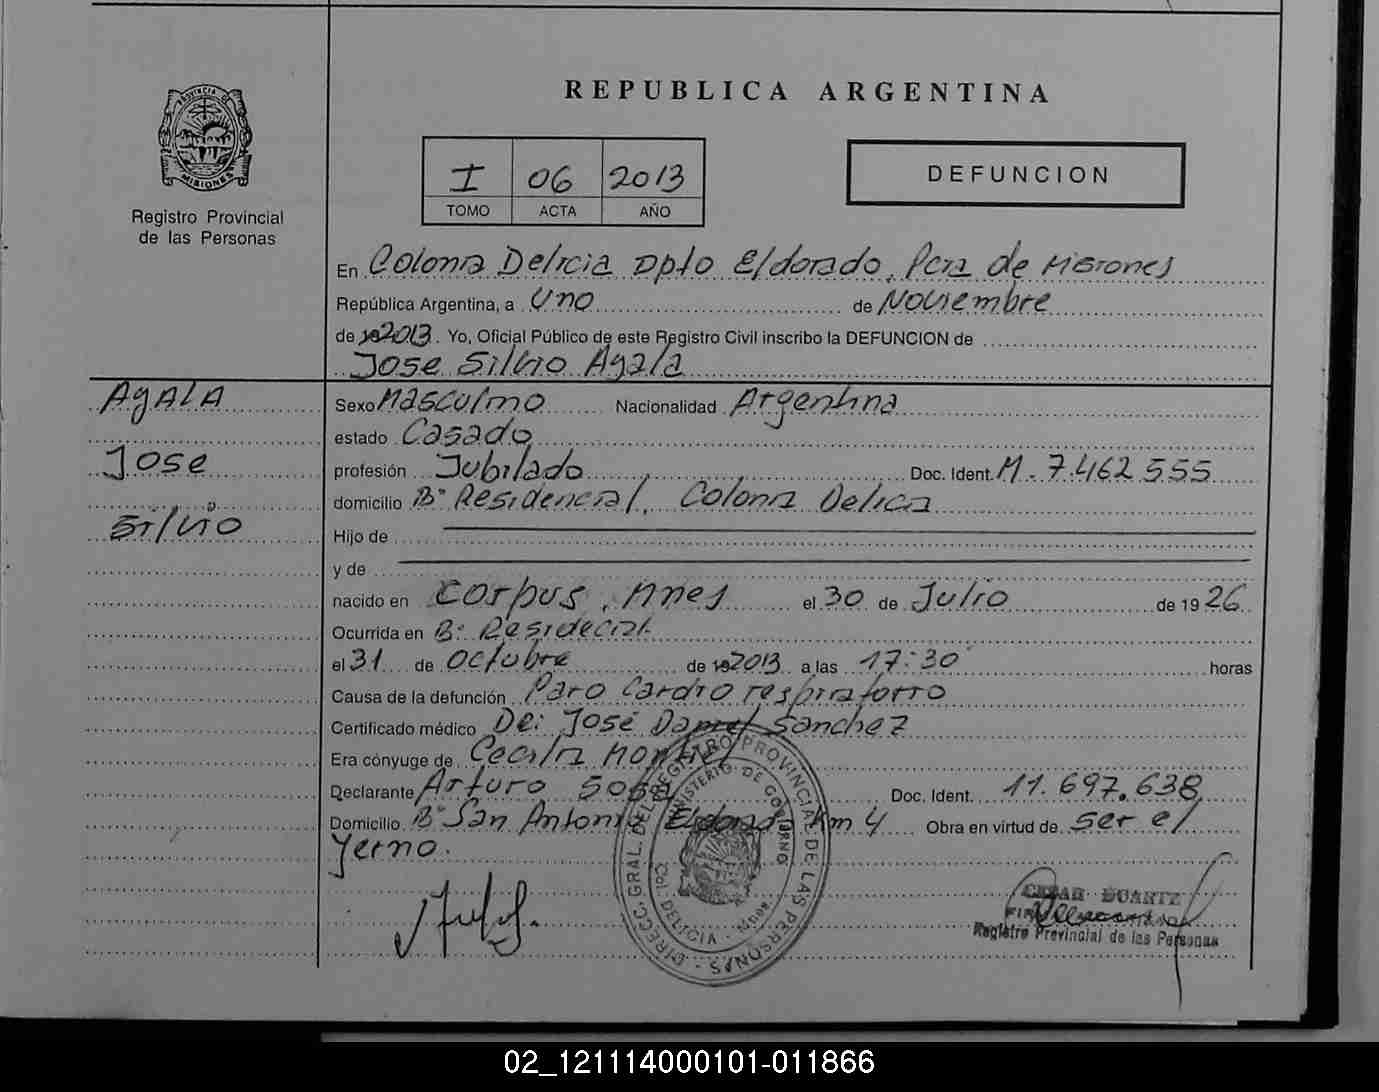 REPUBLICA ARGENTINA
PROVINCIA DE
MISIONES
Registro Provincial
de las Personas
I 06 2013
TOMO ACTA AÑO
DEFUNCION
En Colonia Delicia Dpto Eldorado, Pcia de Misiones
República Argentina, a Uno de Noviembre
de 2013. Yo, Oficial Público de este Registro Civil inscribo la DEFUNCION de
Jose Silvio Ayala
AyALA
Jose
Silvio
Sexo Masculino Nacionalidad Argentina
estado Casado
profesión Jubilado Doc. Ident. M. 7.462.555
domicilio B° Residencial, Colonia Delicia
Hijo de
y de
nacido en Corpus, Mnes el 30 de Julio de 1926
Ocurrida en B° Residecial
el 31 de Octubre de 2013 a las 17:30 horas
Causa de la defunción Paro Cardio respiratorio
Certificado médico De: José Daniel Sanchez
Era cónyuge de Cecilia Montiel
Declarante Arturo Sosa Doc. Ident. 11.697.638
Domicilio B° San Antonio Eldorado Km 4 Obra en virtud de ser el
yerno.
DIRECC. GRAL. DEL REGISTRO PROVINCIAL DE LAS PERSONAS
MINISTERIO DE GOBIERNO
Col. DELICIA - Mnes.
CESAR DUARTE
Registro Provincial de las Personas
02_121114000101-011866